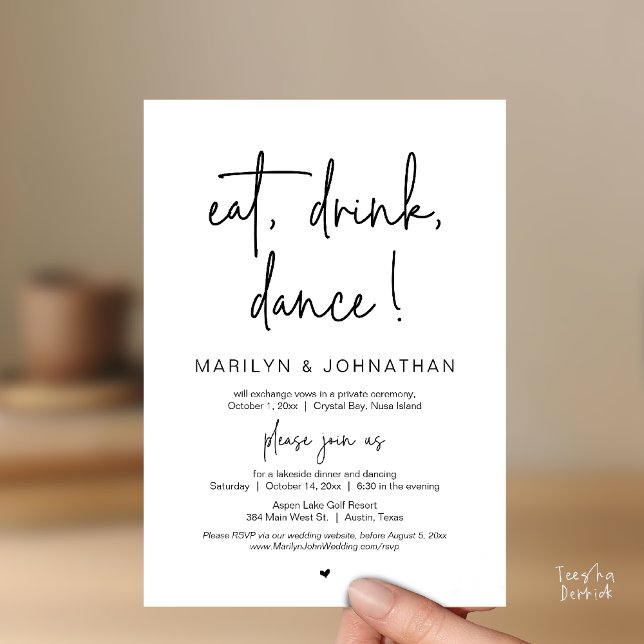 eat, drink,
dance!
MARILYN & JOHNATHAN
will exchange vows in a private ceremony,
October 1, 20xx | Crystal Bay, Nusa Island
please join us
for a lakeside dinner and dancing
Saturday | October 14, 20xx | 6:30 in the evening
Aspen Lake Golf Resort
384 Main West St. | Austin, Texas
Please RSVP via our wedding website, before August 5, 20xx
www.MarilynJohnWedding.com/rsvp
Teesha
Derrick